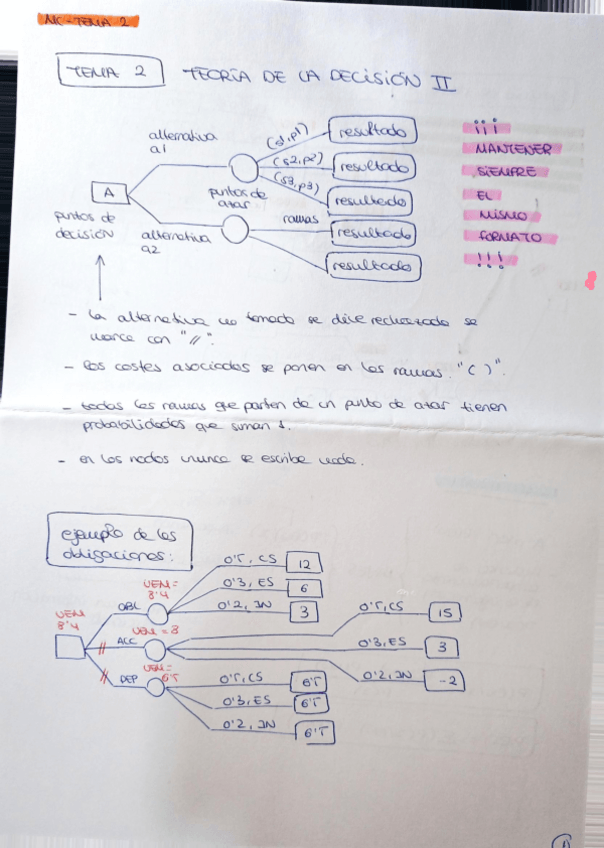 MC-TEMA 2
TEMA 2 TEORÍA DE LA DECISIÓN II
alternativa
a1
(s1,p1)
(s2,p2)
(s3,p3)
resultado
resultado
resultado
resultado
resultado
A
puntos de
decisión
puntos de
azar
ramas
alternativa
a2
¡¡¡
MANTENER
SIEMPRE
EL
MISMO
FORMATO
!!!
- la alternativa no tomada se dice rechazada se
marca con "//".
- los costes asociados se ponen en las ramas "( )".
- todas las ramas que parten de un punto de azar tienen
probabilidades que suman 1.
- en los nodos nunca se escribe nada.
ejemplo de las
obligaciones:
VEM
8'4
OBL
VEM=
8'4
0'5, CS 12
0'3, ES 6
0'2, IN 3
ACC
VEM=8
0'5, CS 15
0'3, ES 3
0'2, IN -2
DEP
VEM=
6'5
0'5, CS 6'5
0'3, ES 6'5
0'2, IN 6'5